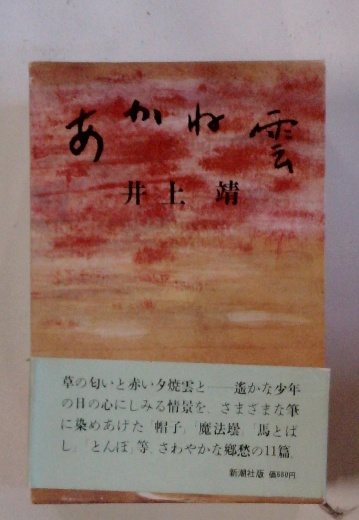 あかね雲
井上 靖
草の匂いと赤い夕焼雲と――遙かな少年
の日の心にしみる情景を、さまざまな筆
に染めあげた「帽子」「魔法壜」「馬とばし」
し」「とんぼ」等、さわやかな郷愁の11篇。
新潮社版 価880円